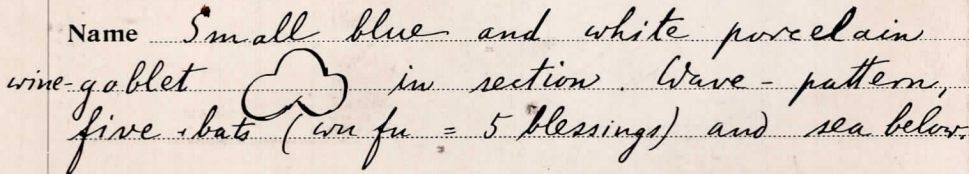 Name Small blue and white porcelain
wine-goblet in section. Wave-pattern,
five bats (wu fu = 5 blessings) and sea below.